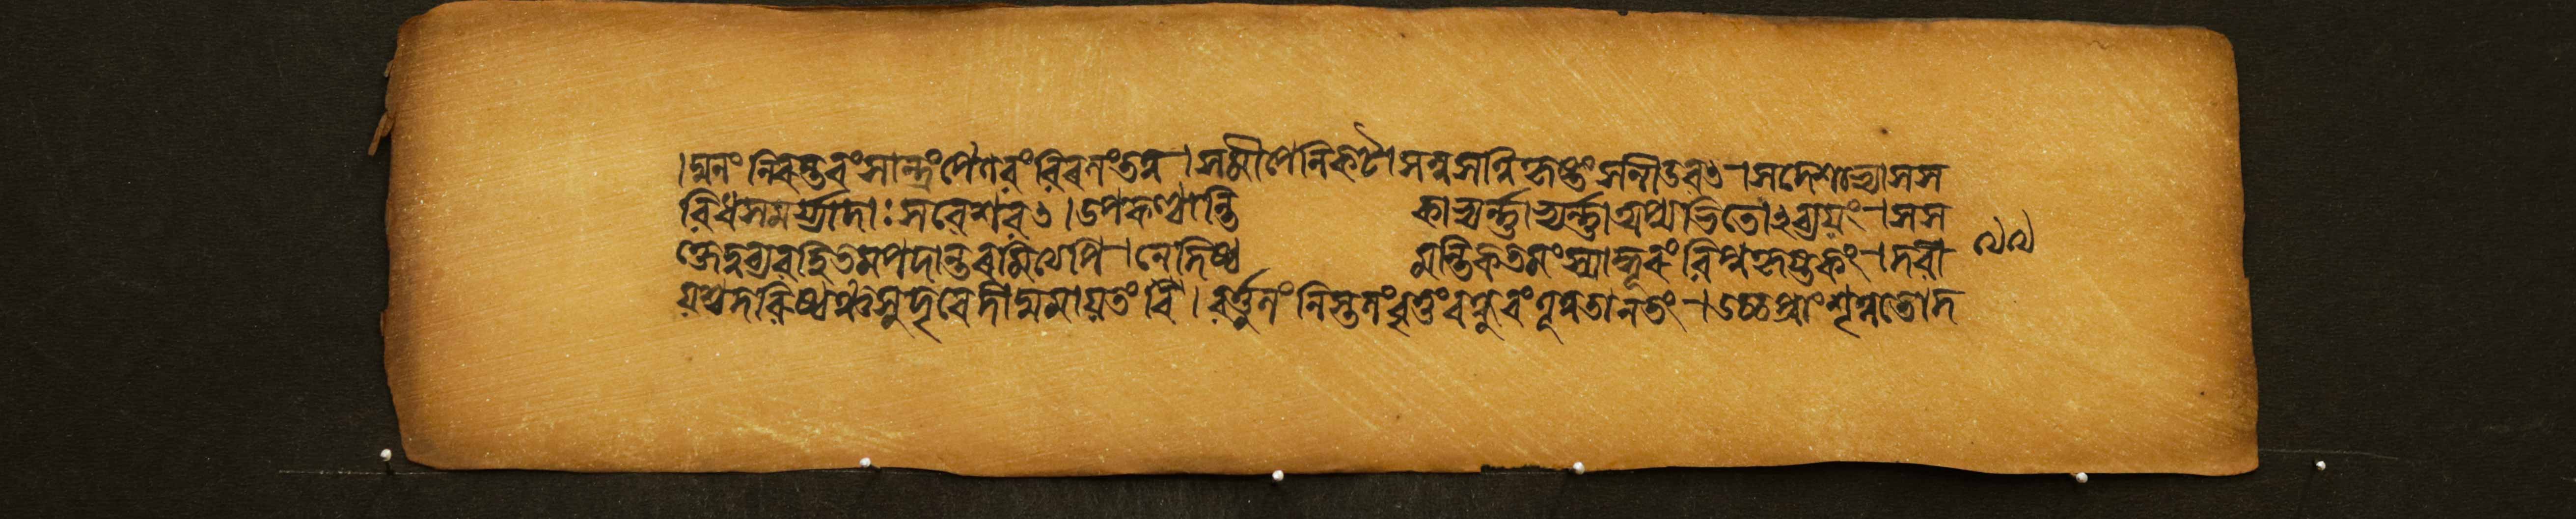 ।ঘনং নিৰন্তৰংসান্দ্ৰংপেলবংবিৰলংতনু।সমীপেনিকটাসন্নসন্নিকৃষ্টংসন্নীডবৎ।সদেশাভ্যাসস
বিধসমৰ্য্যাদাঃসবেশবৎ।উপকণ্ঠান্তি কাভ্যৰ্ন্নাভ্যৰ্ন্নাঅপ্যভিতোঽব্যয়ং।সস
ক্তেত্বব্যবহিতমপদান্তৰমিত্যেপি।নেদিষ্ঠ মন্তিকতমংস্যাদ্দূৰংবিপ্ৰকৃষ্টকং।দবী
য়শ্চদবিষ্ঠঞ্চসুদূৰেদীৰ্ঘমায়তংবি। বৰ্ত্তুলংনিস্তলংবৃত্তংবন্ধুৰংতূন্নতানতং।উচ্চপ্ৰাংশূন্নতোদ